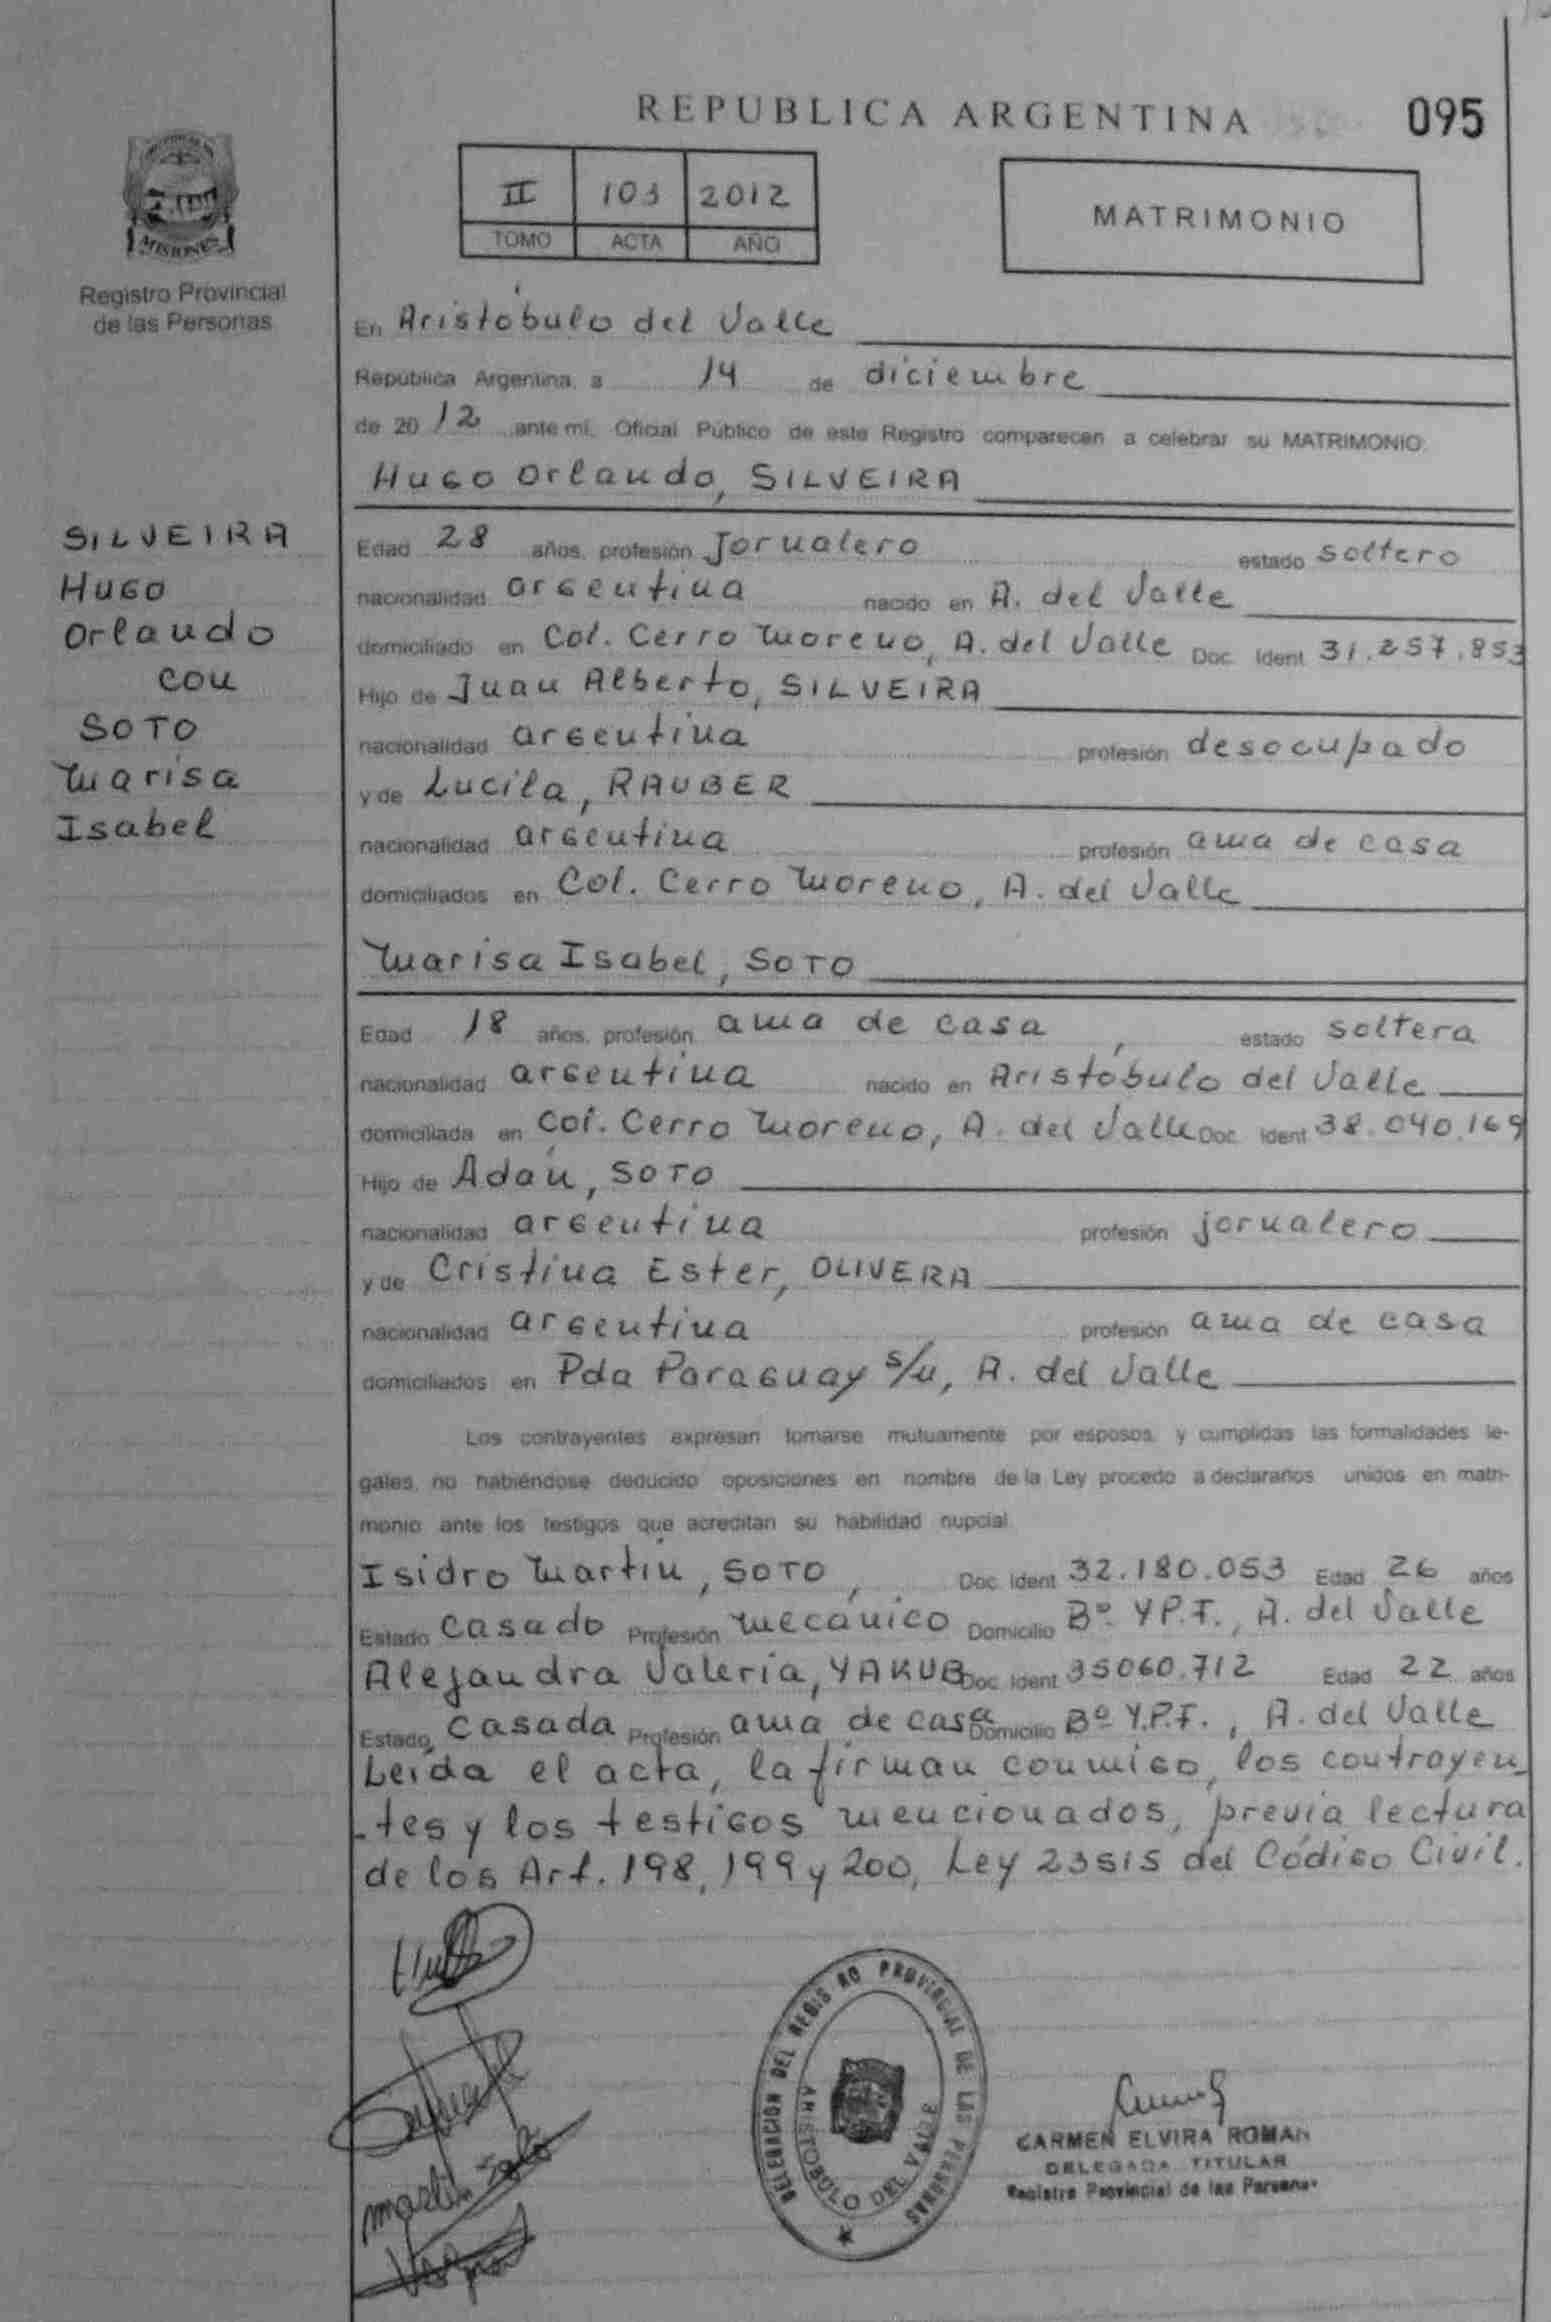 REPUBLICA ARGENTINA 095
MISIONES
Registro Provincial
de las Personas
II 103 2012
TOMO ACTA AÑO
MATRIMONIO
SILVEIRA
Hugo
Orlando
con
SOTO
Marisa
Isabel
En Aristóbulo del Valle
República Argentina, a 14 de diciembre
de 2012 ante mí, Oficial Público de este Registro comparecen a celebrar su MATRIMONIO:
Hugo Orlando, SILVEIRA
Edad 28 años, profesión Jornalero estado soltero
nacionalidad argentina nacido en A. del Valle
domiciliado en Col. Cerro Moreno, A. del Valle Doc. Ident 31.257.853
Hijo de Juan Alberto, SILVEIRA
nacionalidad argentina profesión desocupado
y de Lucila, RAUBER
nacionalidad argentina profesión ama de casa
domiciliados en Col. Cerro Moreno, A. del Valle
Marisa Isabel, SOTO
Edad 18 años, profesión ama de casa estado soltera
nacionalidad argentina nacido en Aristóbulo del Valle
domiciliada en Col. Cerro Moreno, A. del Valle Doc. Ident 38.040.169
Hijo de Adán, SOTO
nacionalidad argentina profesión jornalero
y de Cristina Ester, OLIVERA
nacionalidad argentina profesión ama de casa
domiciliados en Pda Paraguay s/n, A. del Valle
Los contrayentes expresan tomarse mutuamente por esposos, y cumplidas las formalidades le-
gales, no habiéndose deducido oposiciones en nombre de la Ley procedo a declararlos unidos en matri-
monio ante los testigos que acreditan su habilidad nupcial.
Isidro Martín, SOTO, Doc. Ident 32.180.053 Edad 26 años
Estado casado Profesión mecánico Domicilio Bº Y.P.F., A. del Valle
Alejandra Valeria, YAKUB Doc. Ident 35060.712 Edad 22 años
Estado casada Profesión ama de casa Domicilio Bº Y.P.F., A. del Valle
Leída el acta, la firman conmigo, los contrayen_
_tes y los testigos mencionados, previa lectura
de los Art. 198, 199 y 200, Ley 23515 del Código Civil.
Martin Soto
DELEGACION DEL REGISTRO PROVINCIAL DE LAS PERSONAS
ARISTOBULO DEL VALLE
CARMEN ELVIRA ROMAN
DELEGADA TITULAR
Registro Provincial de las Personas